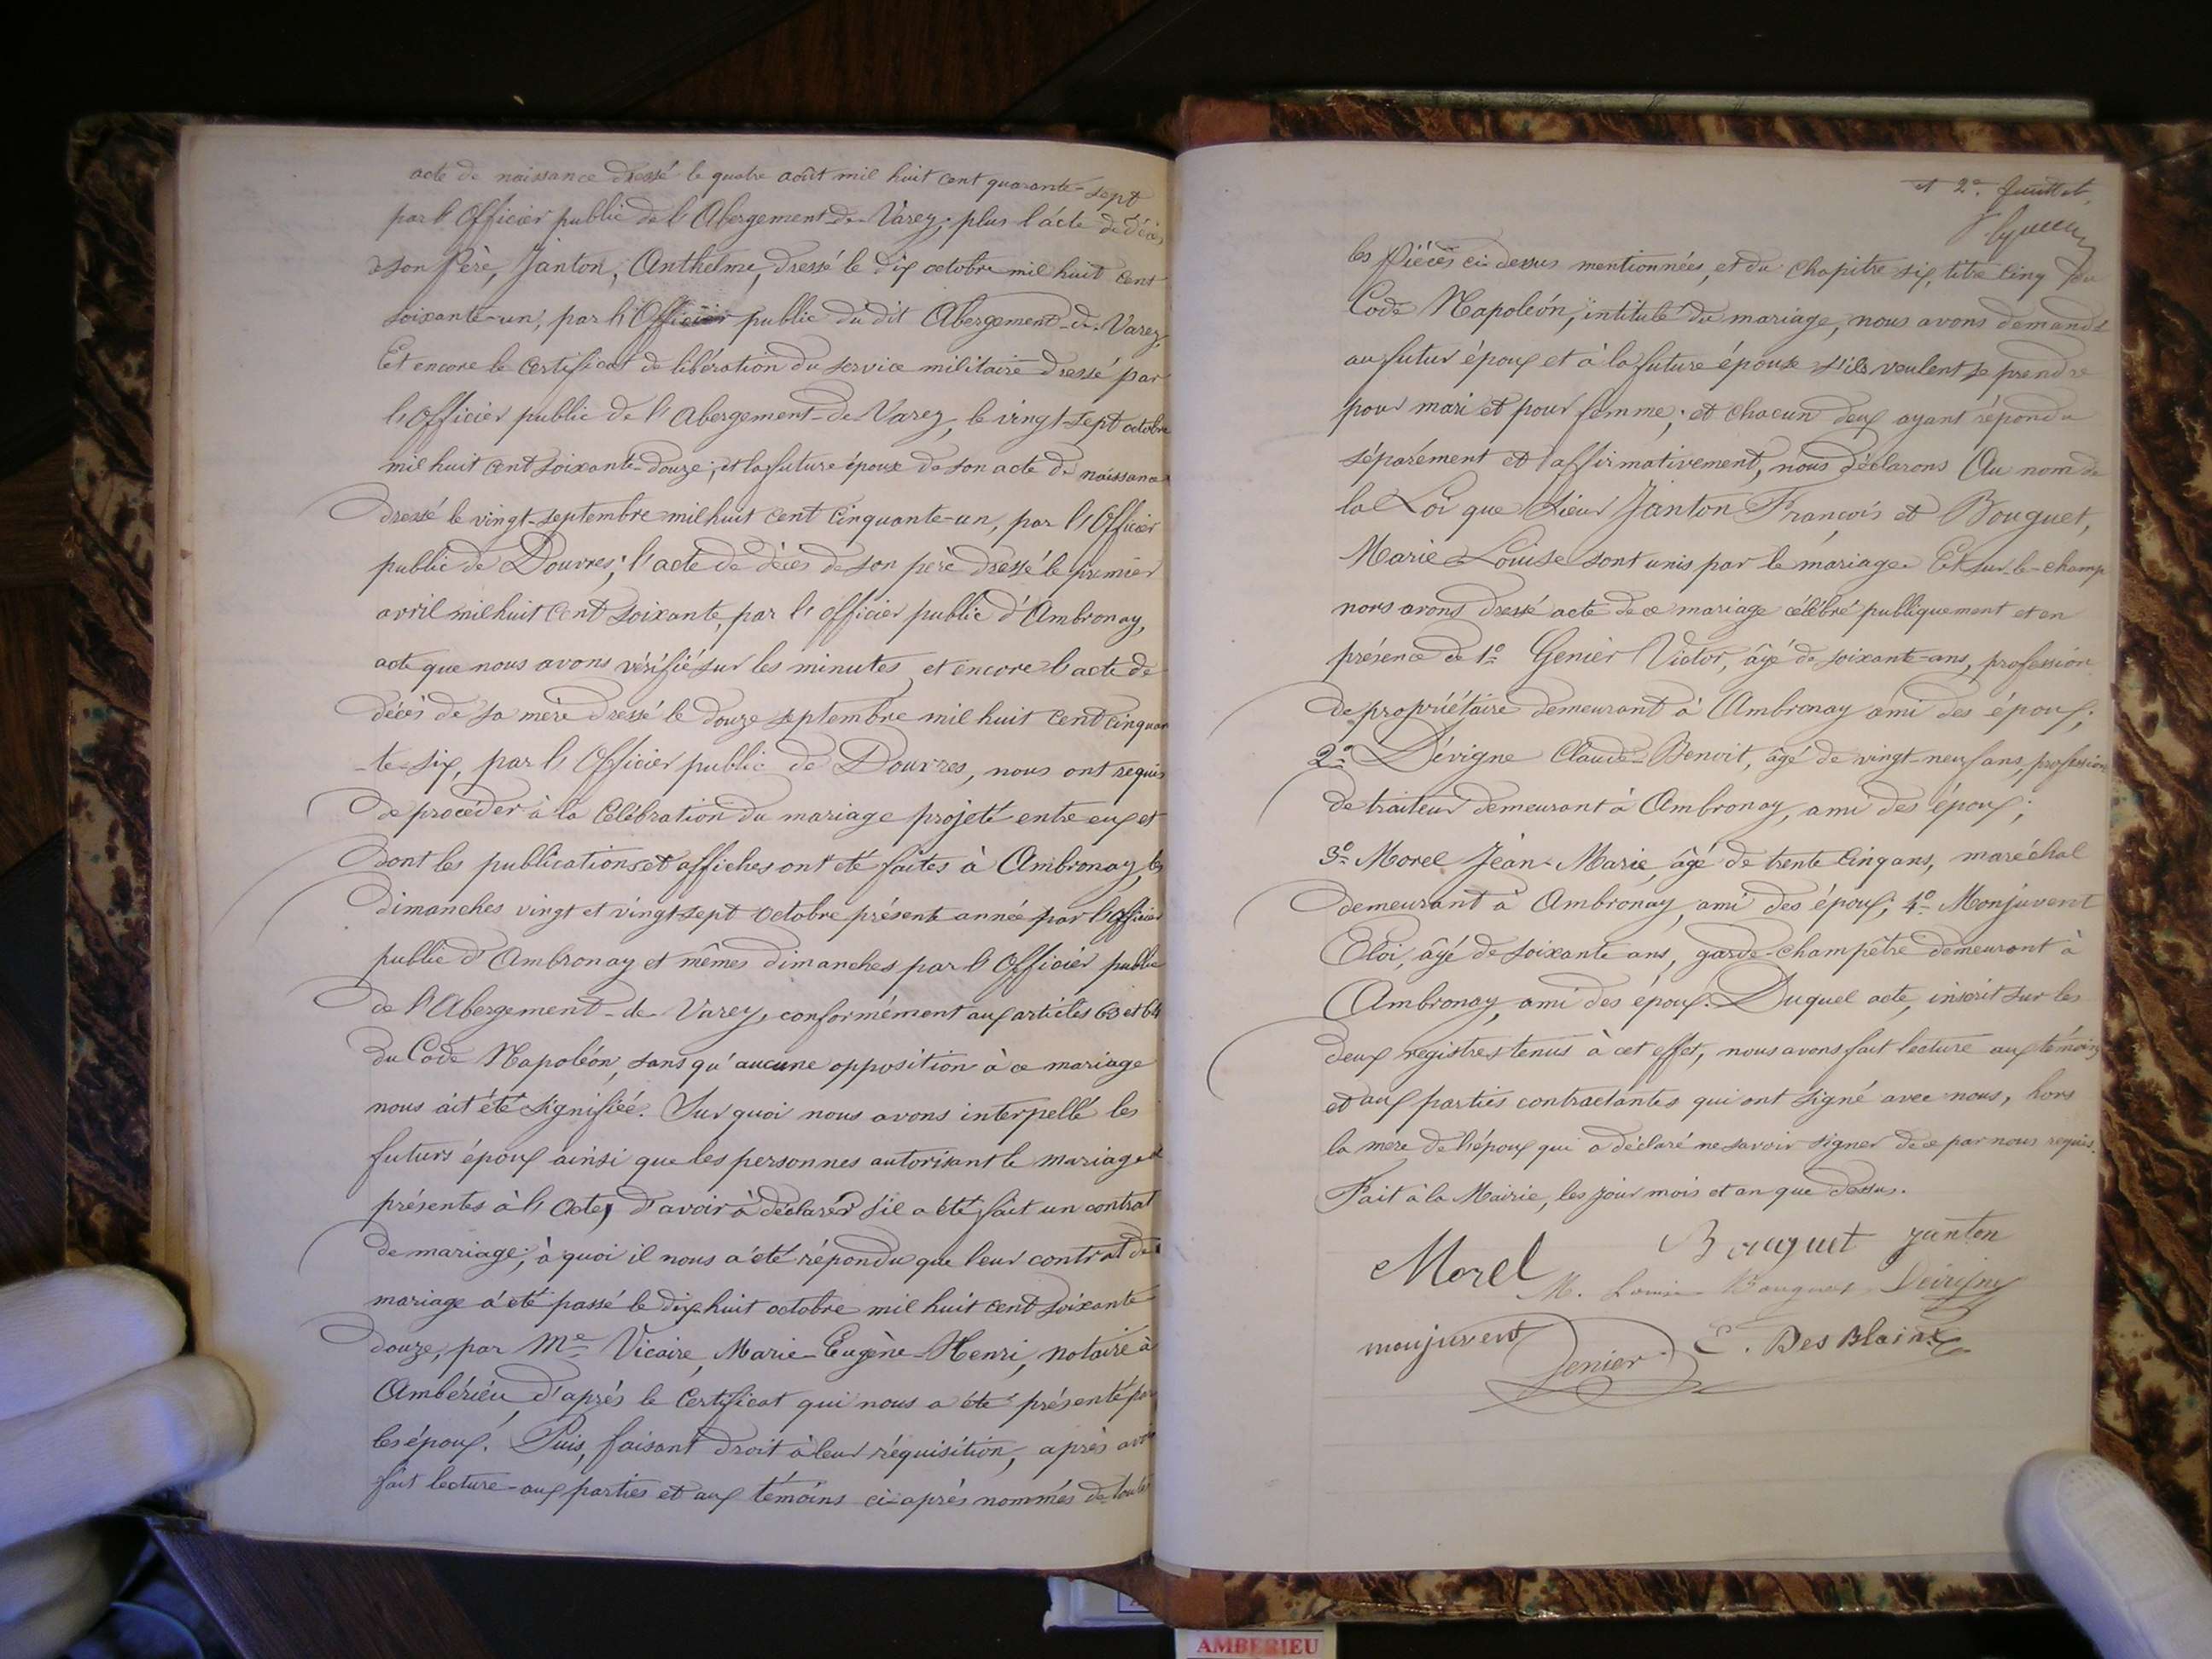 acte de naissance dressé le quatre août mil huit cent quarante-sept
par l'Officier public de l'Abergement-de-Varey; plus l'acte de décès
de son Père, Janton, Anthelme, dressé le dix octobre mil huit cent
soixante-un, par l'Officier public du dit Abergement-de-Varey,
Et encore le certificat de libération du service militaire dressé par
l'Officier public de l'Abergement-de-Varey, le vingt-sept octobre
mil huit cent soixante-douze; et la future épouse de son acte de naissance
dressé le vingt-septembre mil huit cent cinquante-un, par l'Officier
public de Douvres; l'acte de décès de son père dressé le premier
avril mil huit cent soixante, par l'officier public d'Ambronay,
acte que nous avons vérifié sur les minutes et encore l'acte de
décès de sa mère dressé le douze septembre mil huit cent cinquan
-te-six, par l'Officier public de Douvres, nous ont requis
de procéder à la Célébration du mariage projeté entre eux et
dont les publications et affiches ont été faites à Ambronay, les
dimanches vingt et vingt-sept octobre présente année par l'officier
public d'Ambronay et mêmes dimanches par l'Officier public
de l'Abergement-de-Varey, conformément aux articles 63 et 64
du Code Napoléon, sans qu'aucune opposition à ce mariage
nous ait été signifiée. Sur quoi nous avons interpellé les
futurs époux ainsi que les personnes autorisant le mariage et
présentes à l'Acte, d'avoir à déclarer s'il a été fait un contrat
de mariage; à quoi il nous a été répondu que leur contrat de
mariage a été passé le dix-huit octobre mil huit cent soixante
douze, par Me Vicaire, Marie-Eugène-Henri, notaire à
Ambérieu d'après le Certificat qui nous a été présenté par
les époux. Puis, faisant droit à leur réquisition, après avoir
fait lecture aux parties et aux témoins ci-après nommés de toutes
et 2e feuillet
les Pièces ci-dessus mentionnées, et du Chapitre six, titre cinq du
Code Napoléon, intitulé du mariage, nous avons demandé
au futur époux et à la future épouse s'ils veulent se prendre
pour mari et pour femme; et chacun deux ayant répondu
séparément et affirmativement, nous déclarons Au nom de
la Loi que Sieur Janton François et Bouguet,
Marie Louise sont unis par le mariage. Et sur-le-champ
nous avons dressé acte de ce mariage célébré publiquement et en
présence de 1o Genier Victor, âgé de soixante-ans, profession
de propriétaire demeurant à Ambronay ami des époux;
2o Dévigne Claude-Benoit, âgé de vingt-neuf ans, profession
de traiteur demeurant à Ambronay, ami des époux;
3o Morel Jean-Marie, âgé de trente cinq ans, maréchal
demeurant à Ambronay, ami des époux; 4o Monjuvent
Eloi, âgé de soixante ans, garde-champêtre demeurant à
Ambronay, ami des époux. Duquel acte, inscrit sur les
deux registres tenus à cet effet, nous avons fait lecture aux témoins
et aux parties contractantes qui ont signé avec nous, hors
la mère de l'époux qui a déclaré ne savoir signer de ce par nous requis.
Fait à la Mairie, les jour mois et an que dessus.
Bouguet Janton
Morel M. Louise Bouguet Dévigne
monjuvent Genier E. Des Blains
AMBERIEU